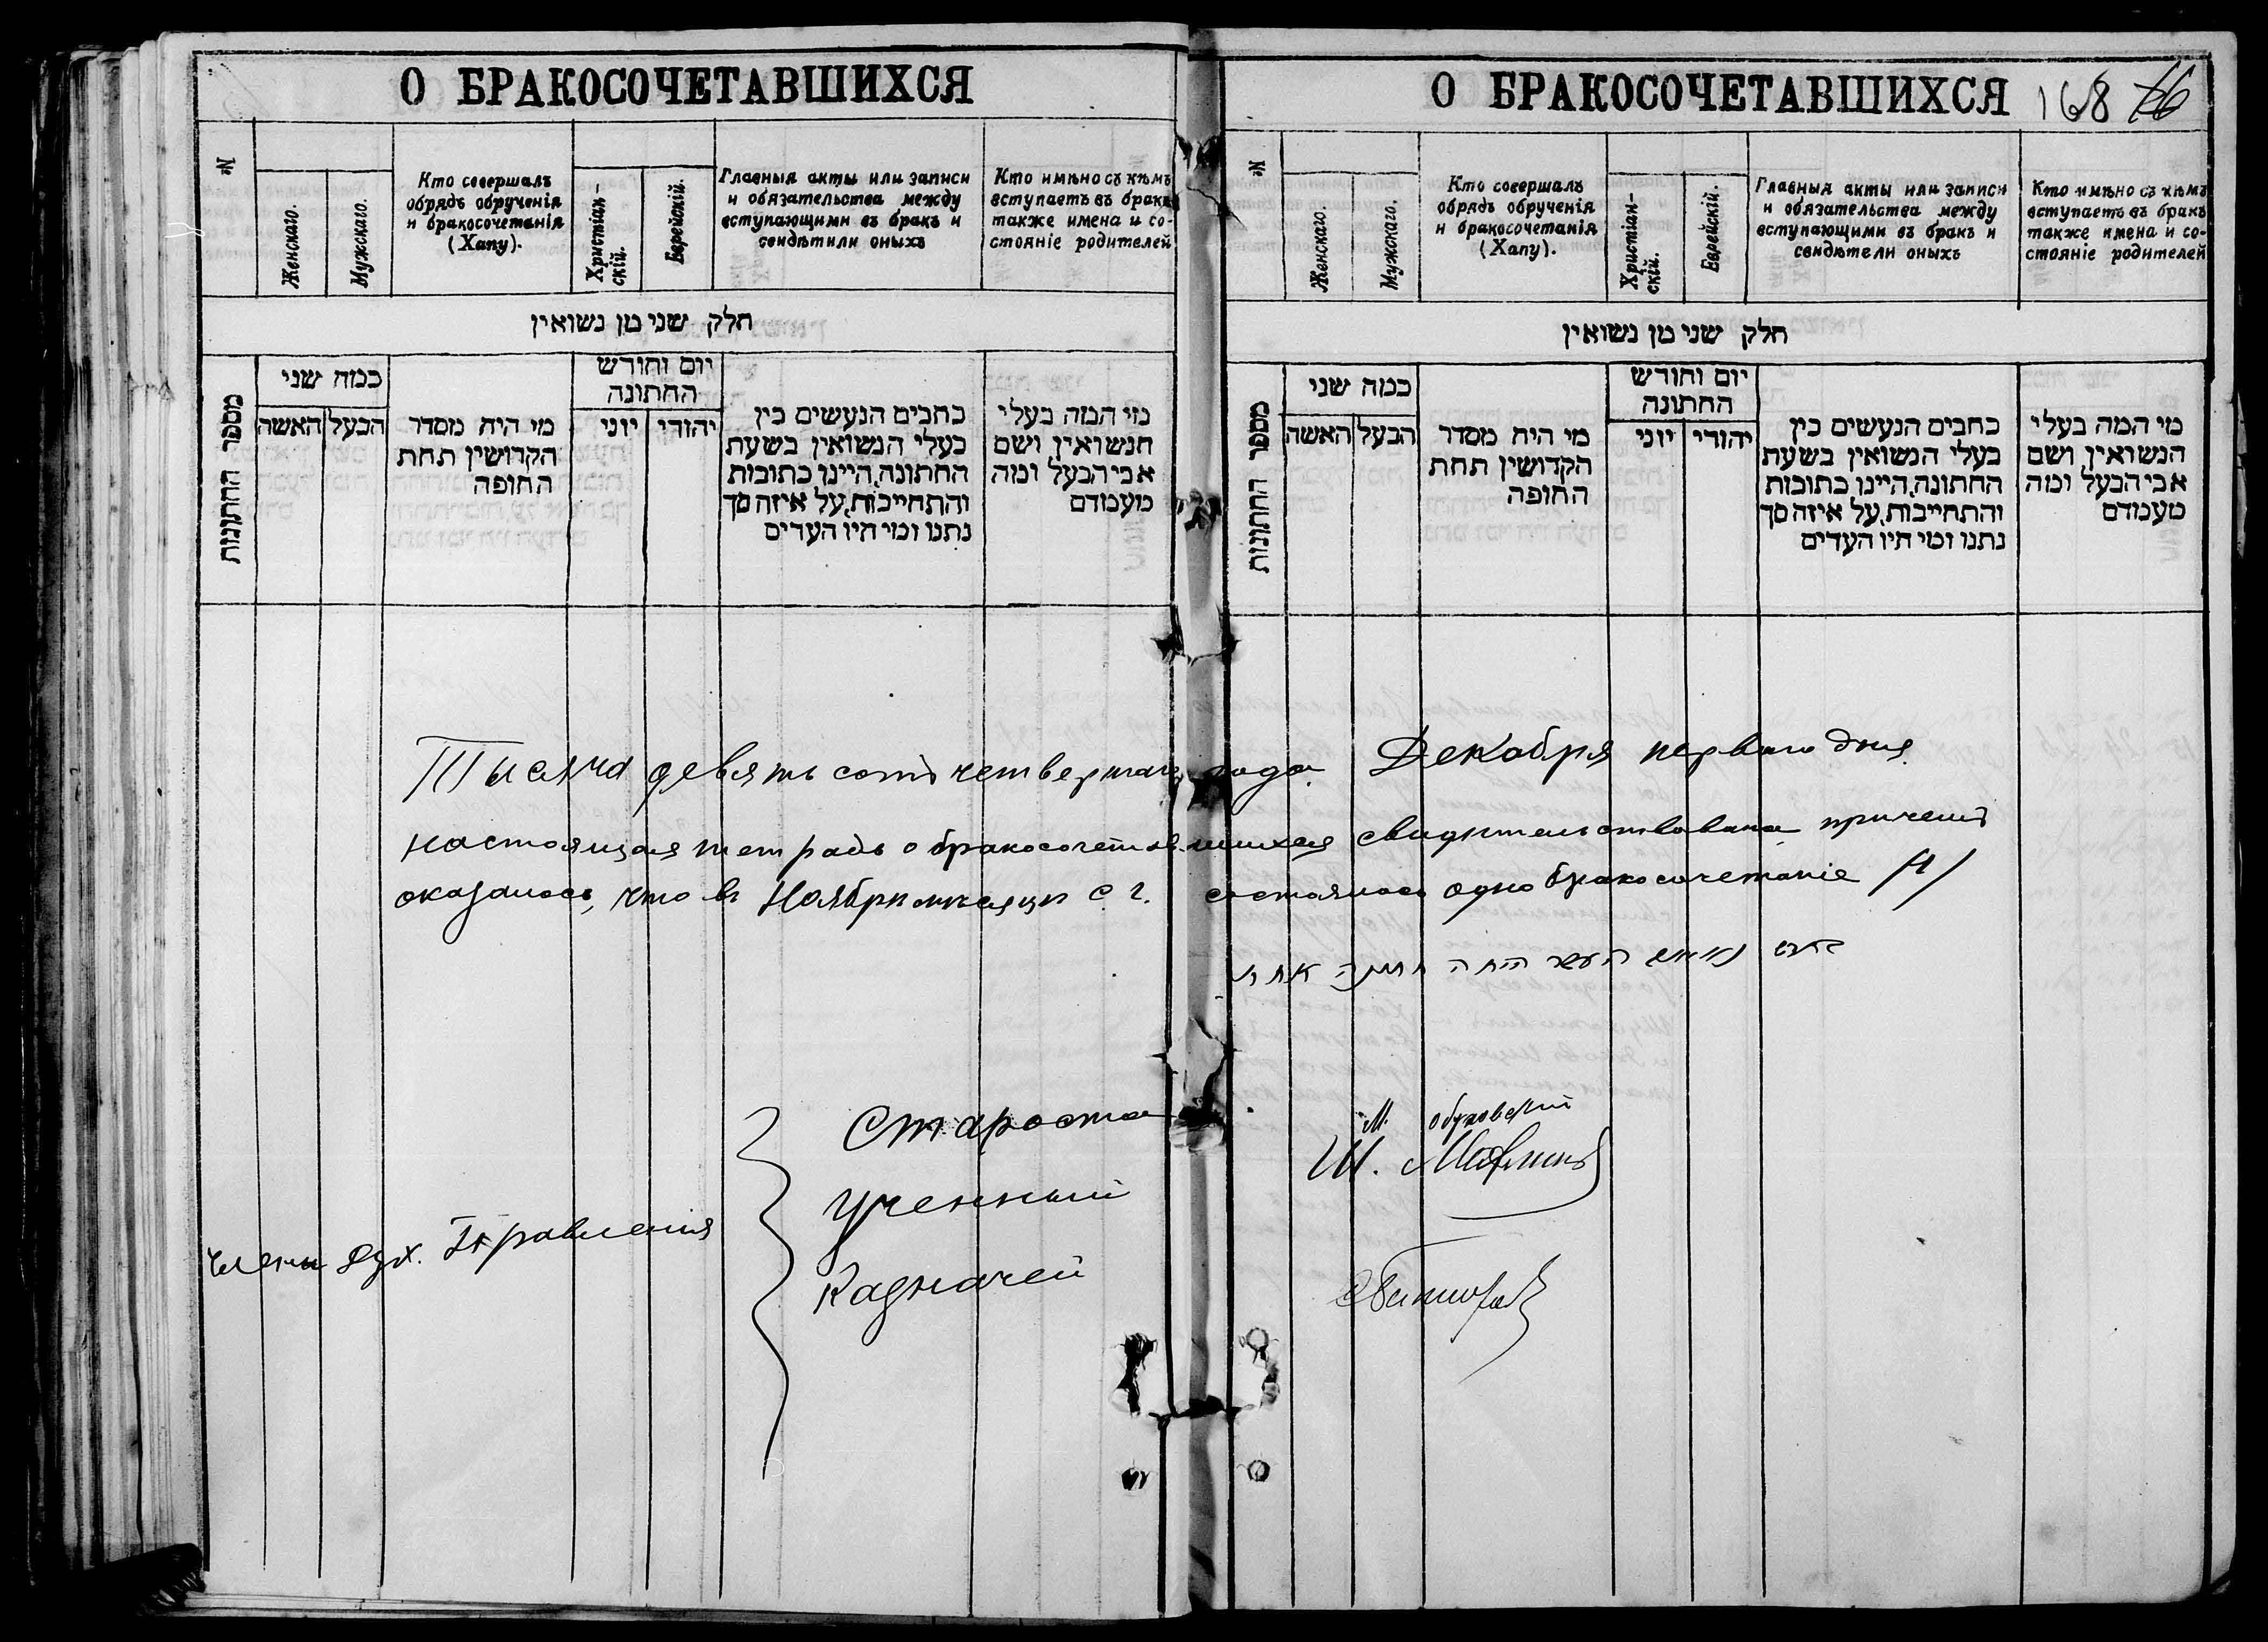 О БРАКОСОЧЕТАВШИХСЯ
№
Женскаго.
Мужскаго.
Кто совершалъ
обрядъ обрученія
и бракосочетанія
(Хапу).
Христіан-
скій.
Еврейскій.
Главныя акты или записи
и обязательства между
вступающими въ бракъ и
свидѣтили оныхъ
Кто имѣно съ кѣмъ
вступаетъ въ бракъ
также имена и со-
стояніе родителей
חלק שני מן נשואין
מספר החתונות
כמה שני
האשה
הבעל
מי היה מסדר
הקדושין תחת
החופה
יום וחורש
החתונה
יוני
יהודי
כתבים הנעשים בין
בעלי הנשואין בשעת
החתונה, היינו כתובות
והתחייבות, על איזה סך
נתנו ומי היו העדים
מי המה בעלי
הנשואין ושם
אבי הבעל ומה
מעמדם
О БРАКОСОЧЕТАВШИХСЯ
168 76
№
Женскаго.
Мужскаго.
Кто совершалъ
обрядъ обрученія
и бракосочетанія
(Хапу).
Христіан-
скій.
Еврейскій.
Главныя акты или записи
и обязательства между
вступающими въ бракъ и
свидѣтели оныхъ
Кто имѣно съ кѣмъ
вступаетъ въ бракъ
также имена и со-
стояніе родителей
חלק שני מן נשואין
מספר החתונות
כמה שני
האשה
הבעל
מי היה מסדר
הקדושין תחת
החופה
יום וחורש
החתונה
יוני
יהודי
כתבים הנעשים בין
בעלי הנשואין בשעת
החתונה, היינו כתובות
והתחייבות, על איזה סך
נתנו ומי היו העדים
מי המה בעלי
הנשואין ושם
אבי הבעל ומה
מעמדם
Тысяча девять сотъ четвертаго года Декабря перваго дня
настоящая тетрадь о бракосочетавшихся свидѣтельствована причемъ
оказалось, что въ Ноябрѣ мѣсяцѣ с. г. состоялось одно бракосочетаніе /1/
היתה חתונה אחת
Члены Дух. Правленія
Староста М. Обуховский
Ученный Ш.
Казначей